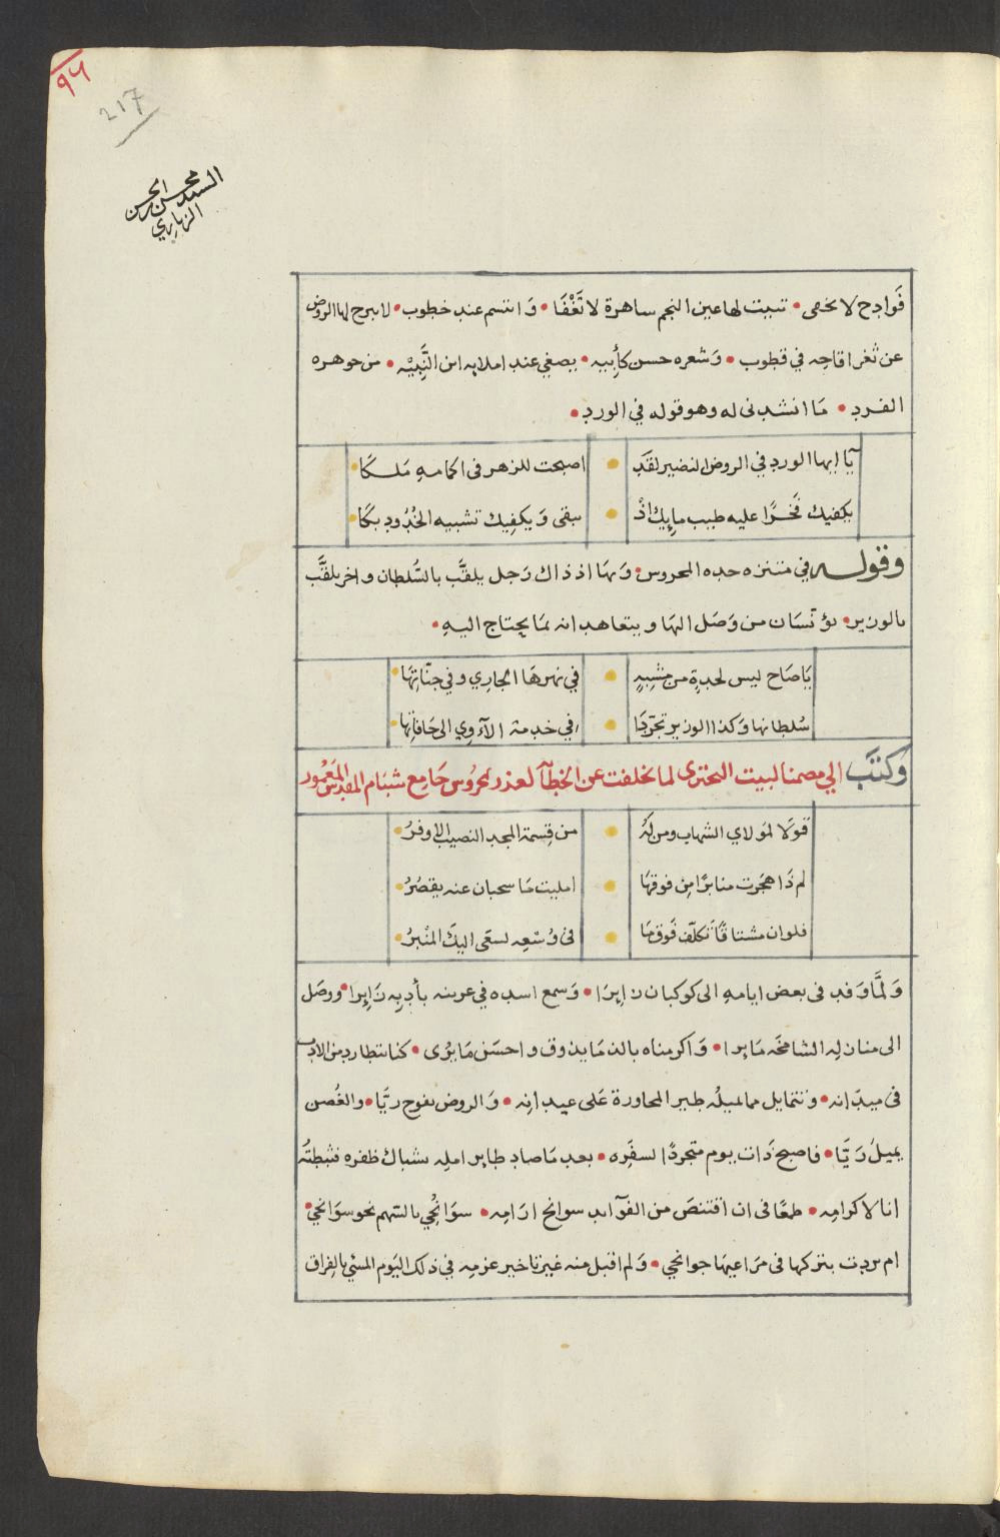 ٩٦
217
السيد محسن بن الحسن
الزباري
فَوادِح لا تخفى • تبيت لها عين النجم ساهرة لا تَغْفَا • وَ ابتسم عند خطوب • لا يبرح لها الروض
عن ثغر اقاحه في قطوب • وَشعره حسن كأبيه • يصغي عند املايه ابن النَّبِيْه • من جوهره
الفرد • مَا انشدنى له وهو قوله في الورد •
يَا ايها الورد في الروض النضير لقَد • اصبحت للزهر فى اكمامهِ مَلكَا
يكفيك فَخرًا عليه طيب مايِك اذْ • يبقى وَ يكفِيك تشبيه الخُدُود بكَا
وقوله في متنزه حده المحروس • وَبهَا اذ ذاك رَجل يلقَّب بالسُّلطان واخر يلقَّب
بالوزير • يؤنسَان من وَصَل اليهَا ويتعاهدانه بمَا يحتاج اليهِ •
يَا صَاح ليس لحدةٍ من مشبِهٍ • في نهرهَا الجارِي وفي جنّاتِهَا
سُلطانها وَكذا الوزير تجرّدَا • في خدمة الآءوِي الى حَافاتِها
وَكتَبَ الي مضمنا لبيت البحترى لما تخلفت عن الخطآبة لعذر لمحرُوس جَامِع شبَام المقدس المَعْمُور
قولا لمَولاي الشهاب ومن لَهُ • من قِسمة المجد النصيب الاوفرُ
لم ذَا هجَرت منابرًا مِن فوقهَا • امليت مَا سحبان عنه يقصُرُ
فلو ان مشتاقًا تكلّف فَوق مَا • فى وُسْعِه لسعَى اليكَ المنْبَرُ
وَلمَّا وَفد فى بعض ايامهِ الى كوكبان زايرًا • وَسمع اسده في عرينه بأدبِه زَايرا • ووصَل
الى منازلِه الشامخَه مَابرا • وَاكرمناه بالذ مَا يذوق واحسَن مَا يَرَى • كنا نتطارد من الادب
فى ميدَانه • ونتمايل مما لميلُه طير المحاورة عَلى عيدانِه • وَالروض يفوح ريَّا • والغُصن
يميلُ رَيَّا • فاصبح ذَات يوم متجردًا لسفَره • بعد مَا صاد طاير املِه بشباك ظفره فثبطتُه
انا لاكرامِه • طمعًا فى ان اقتنصَ من الفوآيد سوانح ارَامِه • سوَانحُي بالسّهم نحو سوَانحي •
ام بردت بتركها فى مَراعيهَا جوانحي • وَلم اقبل منه غير تاخير عزمه في ذلك اليَوم المسيء بالفِراق